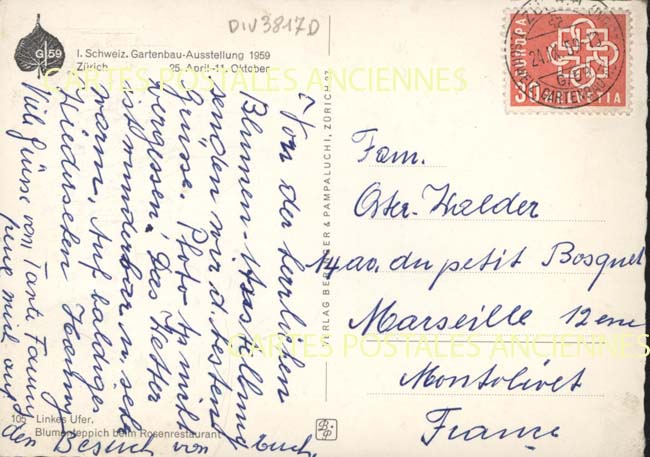 DIV3817D
G|59
I. Schweiz. Gartenbau-Ausstellung 1959
Zürich 25. April-11. Oktober
CARTES POSTALES ANCIENNES
Von der herrlichen
Blumen-Ausstellung
senden wir d. besten
Grüsse. Photo
vergessen. Das Wetter
ist wunderbar u. sehr
warm. Auf baldiges
Wiedersehen
Viele Grüsse von Tante Fanny
freue mich auf
den Besuch von Euch.
105 Linkes Ufer.
Blumenteppich beim Rosenrestaurant
VERLAG BERRINGER & PAMPALUCHI, ZÜRICH
B.P
EUROPA
30
HELVETIA
Fam.
Oster-Walder
14 av. du petit Bosquet
Marseille 12eme
Montolivet
France
CARTES POSTALES ANCIENNES